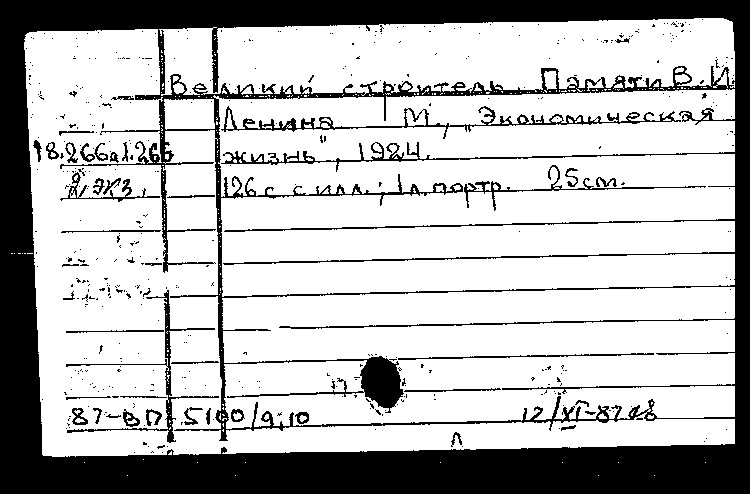 Великий строитель. Памяти В.И.
Ленина М., „Экономическая
18.266а1.266 жизнь", 1924.
2 экз. 126 с с илл.; 1л. портр. 25 см.
87-ВП-5100/9;10 12/XI-87
Л